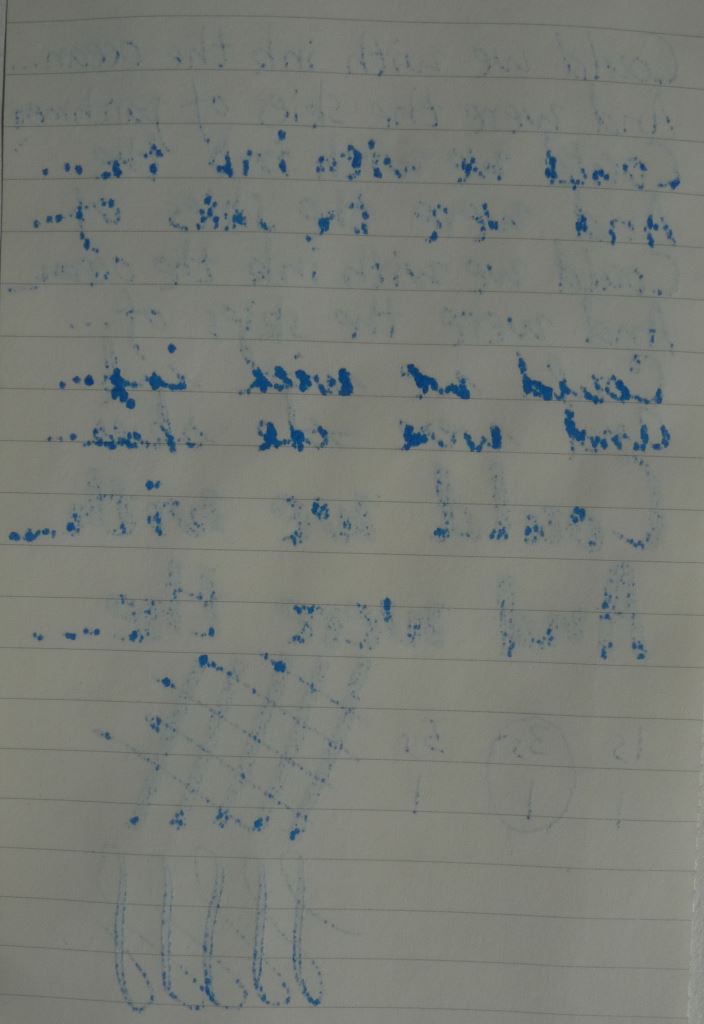 Could we with ink the ocean...
And were the skies of parchm
Could we with ink the...
And were the skies of...
Could we with ink the ocean...
And were the skies of...
Could we with ink...
And were the skies...
Could we with...
And were the...
1s 3s 5s